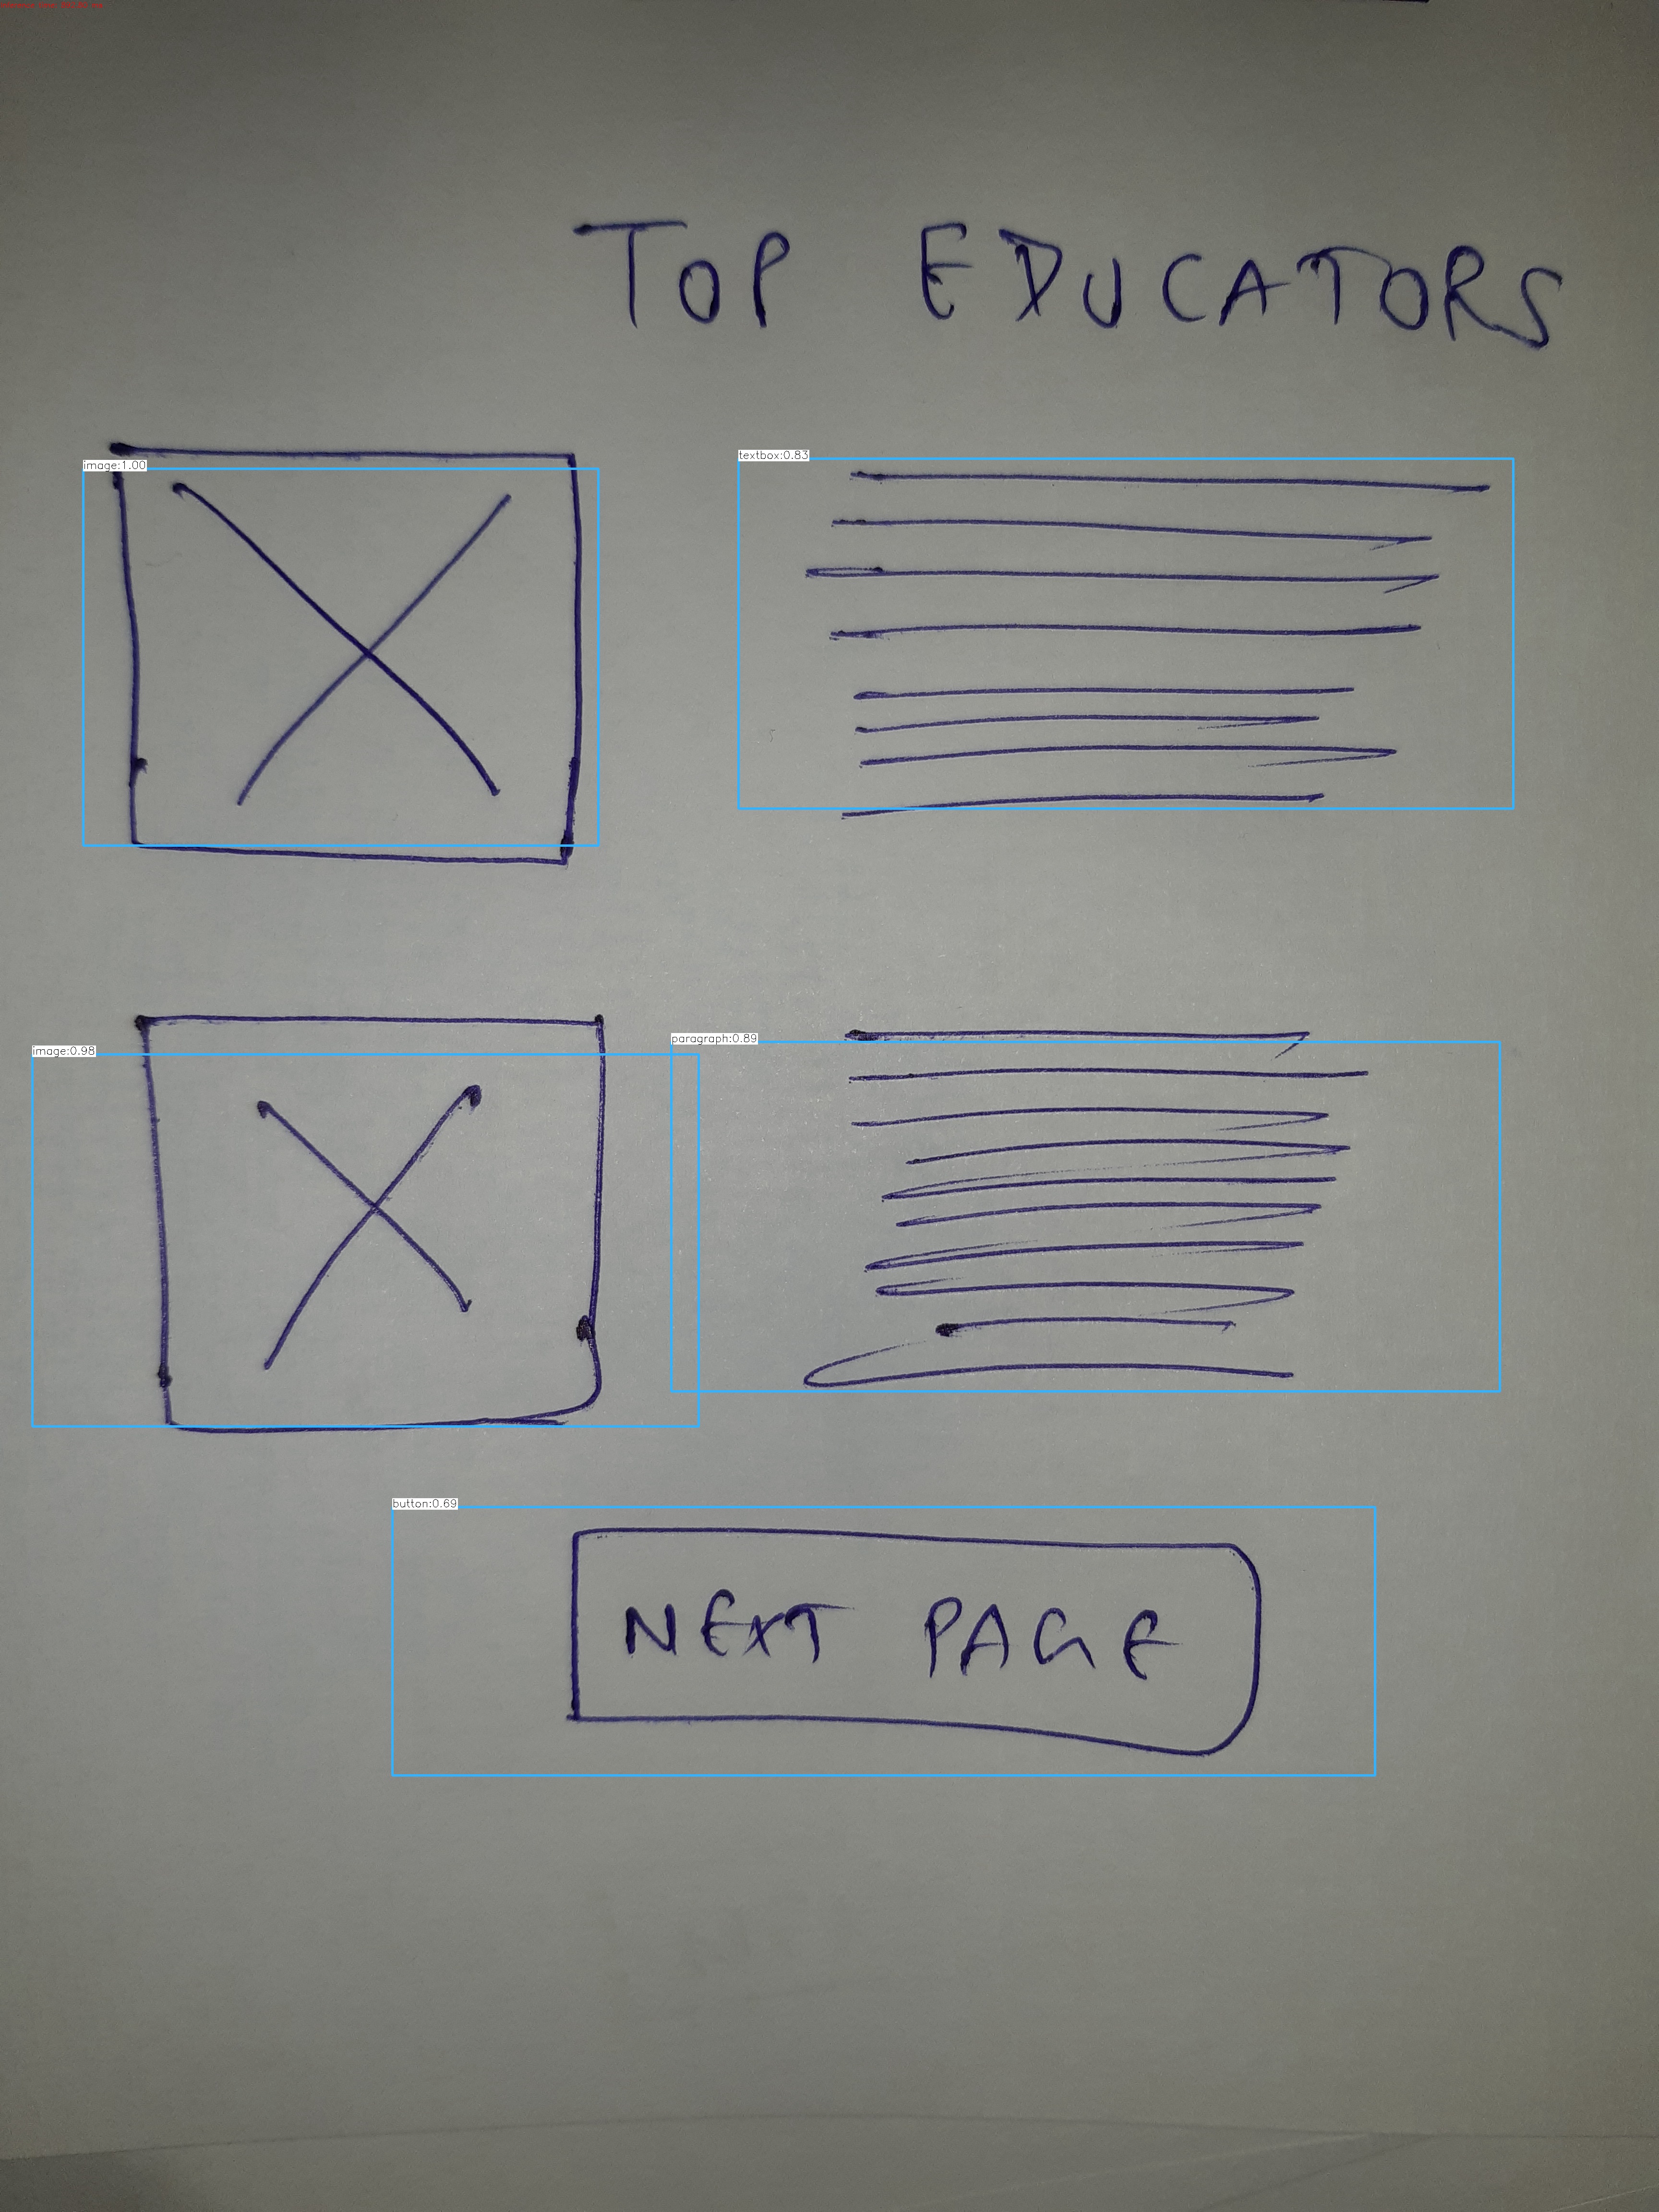 TOP EDUCATORS
image:1.00
textbox:0.83
image:0.98
paragraph:0.89
button:0.69
NEXT PAGE